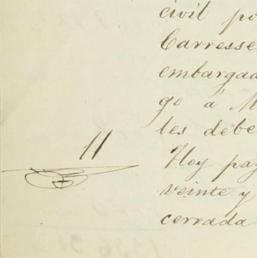 civil po
Carresse
embargad
go á M
les debe
11
Hoy pag
veinte y
cerrada